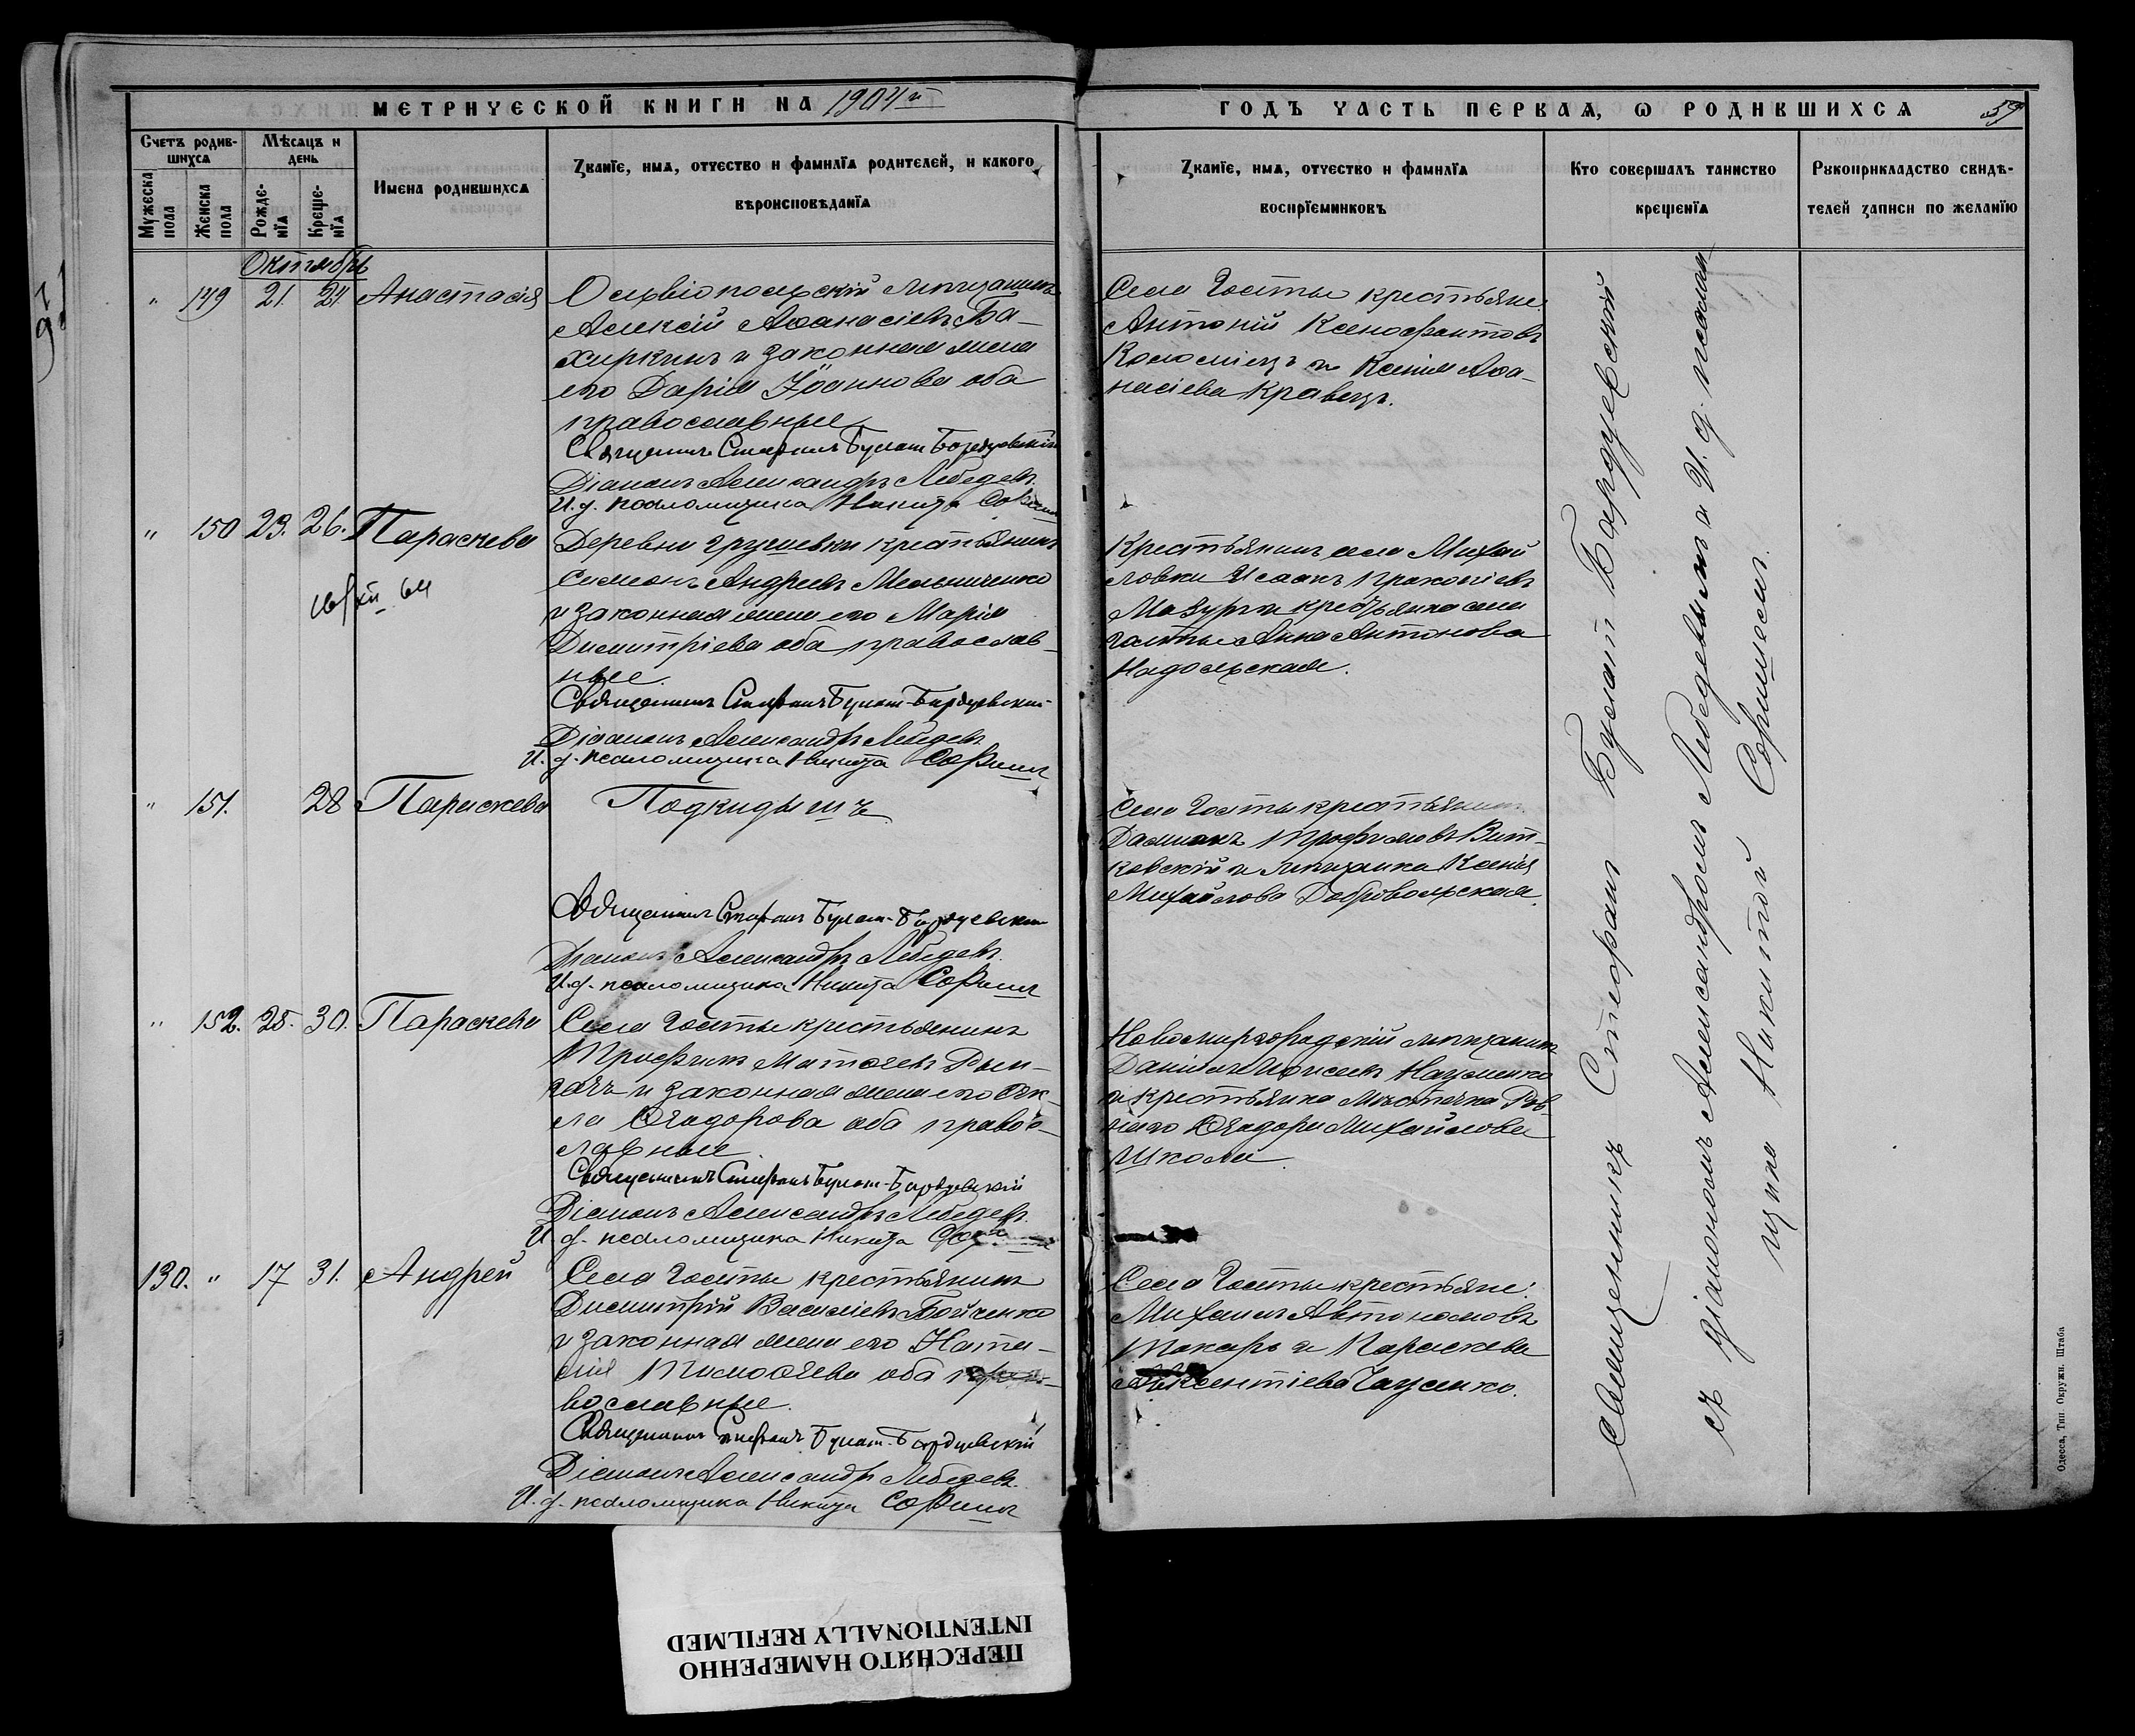 МЕТРИЧЕСКОЙ КНИГИ НА 1904й
ГОДЪ ЧАСТЬ ПЕРВАЯ, Ѡ РОДИВШИХСЯ
59
Счетъ родив-
шихся
Мѣсяцъ и
день
Мужеска
пола
Женска
пола
Рожде-
нїя
Креще-
нїя
Имена родившихся
Званїе, имя, отчество и фамилїя родителей, и какого
вѣроисповѣданїя
Званїе, имя, отчество и фамилїя
воспрїемниковъ
Кто совершалъ таинство
крещенїя
Рукоприкладство свидѣ-
телей записи по желанїю
Октябрь
" 149 21. 24 Анастасія
Ольвіопольскій мѣщанинъ
Алексій Аѳанасіевъ Ба-
хиркинъ и законная жена
его Дарія Іоаннова оба
православные
Священникъ Стефанъ Булат-Бордуевскій
Діаконъ Александръ Лебедевъ
И.д. псаломщика Никита
Села Голты крестьяне:
Антоній Ксенофонтовъ
Коломіецъ и Ксенія Аѳа-
насіева Кравецъ.
" 150 23. 26. Параскева
Деревни Грушевки крестьянинъ
Симеонъ Андреевъ Мельниченко
и законная жена его Марія
Димитріева оба православ-
ные.
Священникъ Стефанъ Булат-Бордуевскій
Діаконъ Александръ Лебедевъ
И. д. псаломщика Никита
Крестьянинъ села Михай
ловки Исаакъ Прокопіевъ
Мазуръ и крестьянка села
Голты Анна Антонова
Надольская.
" 151. 28 Параскева
Подкидышъ
Священникъ Стефанъ Булат-Бордуевскій
Діаконъ Александръ Лебедевъ.
И.д. псаломщика Никита
Села Голты крестьянинъ
Даміанъ Трофимовъ Вит-
ковскій и мѣщанка Ксенія
Михайлова Добровольская.
" 152. 25. 30. Параскева
Села Голты крестьянинъ
Трофимъ Матѳеевъ
и законная жена его Ѳек-
ла Ѳеодорова оба правос-
лавные.
Священникъ Стефанъ Булат-Бордуевскій
Діаконъ Александръ Лебедевъ.
И. д. псаломщика Никита
Новомиргородскій мѣщанинъ
Даніилъ Моисеевъ Науменко
и крестьянка мѣстечка Ров-
ного Ѳеодора Михайлова
Школа.
130. " 17 31. Андрей
Села Голты крестьянинъ
Димитрій Василіевъ Бойченко
и законная жена его Ната-
лія Тимоѳеева оба пра-
вославные.
Священникъ Стефанъ Булат-Бордуевскій
Діаконъ Александръ Лебедевъ.
И. д. псаломщика Никита
Села Голты крестьяне:
Михаилъ Автономовъ
Токарь и Параскева
Авксентіева
Священникъ Стефанъ Булат Бордуевскій
съ діакономъ Александромъ Лебедевымъ и И. д. псалом
щика Никитой
Одесса, Тип. Окружн. Штаба
ПЕРЕСНЯТО НАМЕРЕННО
INTENTIONALLY REFILMED